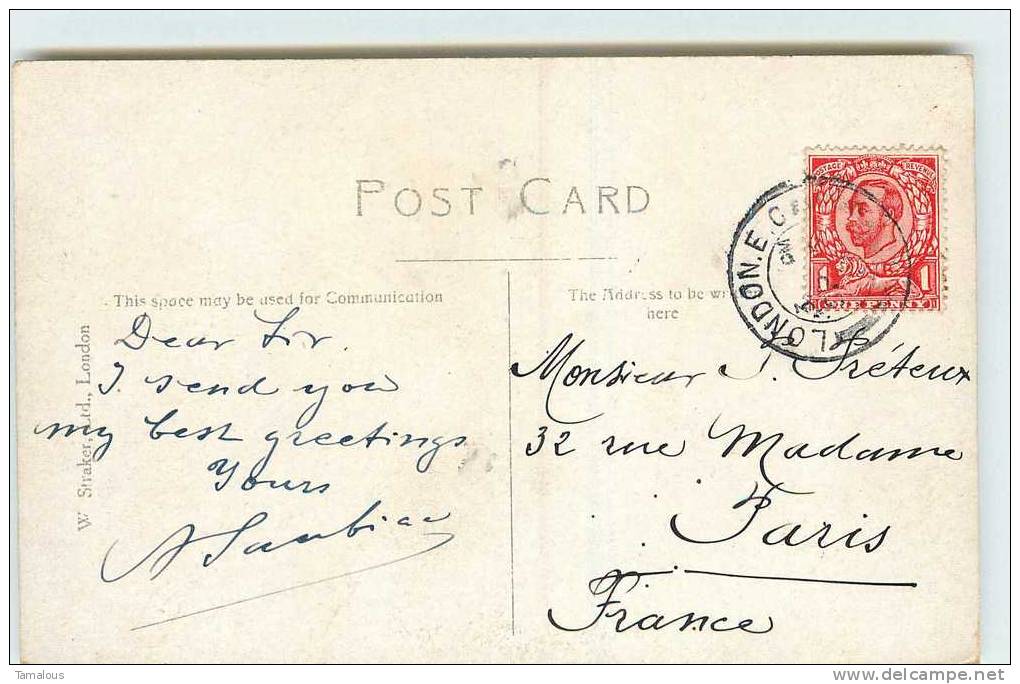 POST CARD
This space may be used for Communication
The Address to be
here
W Straker, Ltd., London
Dear Sir.
I send you
my best greetings
Yours
Monsieur J. Préteux
32 rue Madame
Paris
France
POSTAGE REVENUE
1 1
ONE PENNY
LONDON. E.C
Tamalous
www.delcampe.net